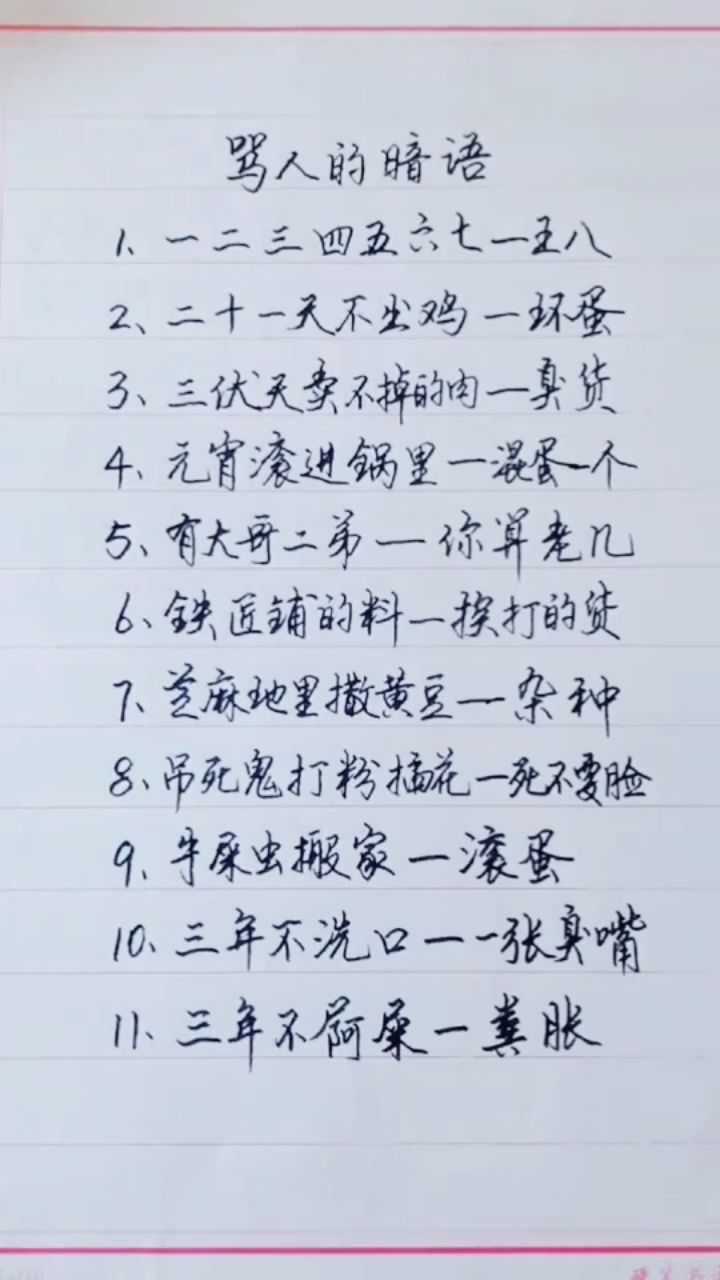 骂人的暗语
1、一二三四五六七一王八
2、二十一天不出鸡一坏蛋
3、三伏天卖不掉的肉一臭货
4、元宵滚进锅里一混蛋一个
5、有大哥二弟一你算老几
6、铁匠铺的料一挨打的货
7、芝麻地里撒黄豆一杂种
8、吊死鬼打粉搽花一死不要脸
9、牛屎虫搬家一滚蛋
10、三年不洗口一一张臭嘴
11、三年不屙屎一粪胀